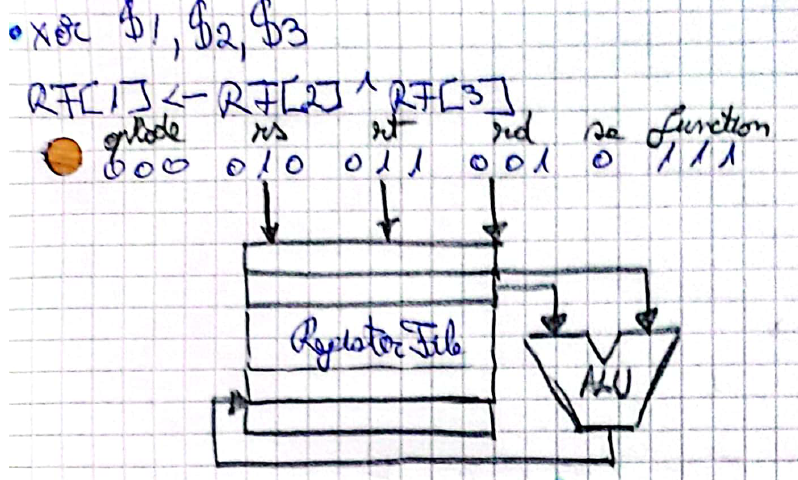 • xor $1, $2, $3
RF[1] <- RF[2] ^ RF[3]
opcode rs rt rd sa function
000 010 011 001 0 111
Register File
ALU